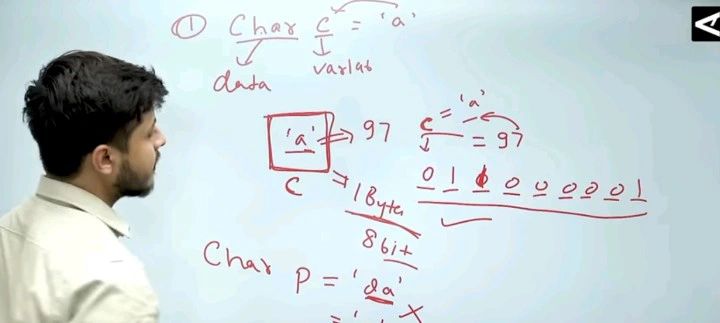 ① Char c = 'a'
data
variab
'a' ⇒ 97
c
c = 'a'
= 97
⇒ 1 Byte
8 bit
0 1 1 0 0 0 0 0 1
Char P = 'da'
= '